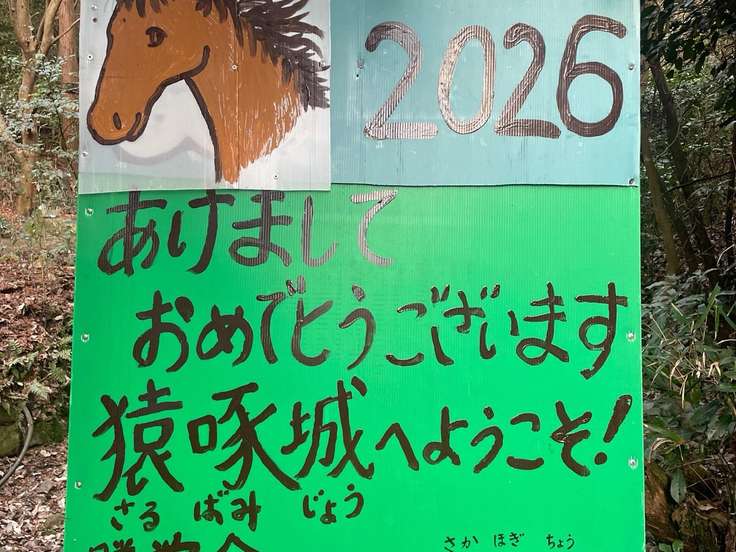 2026
あけまして
おめでとうございます
猿啄城へようこそ!
さる ばみ じょう
さか ほぎ ちょう